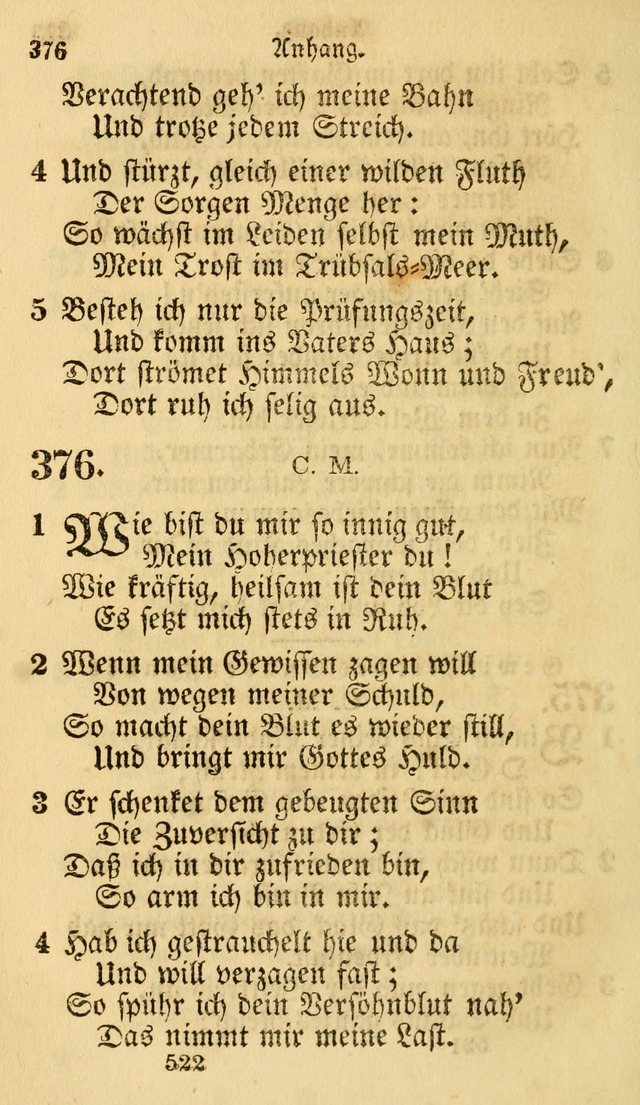 376 Anhang.
Verachtend geh' ich meine Bahn
Und trotze jedem Streich.
4 Und stürzt, gleich einer wilden Fluth
Der Sorgen Menge her:
So wächst im Leiden selbst mein Muth,
Mein Trost im Trübsals-Meer.
5 Besteh ich nur die Prüfungszeit,
Und komm ins Vaters Haus;
Dort strömet Himmels Wonn und Freud',
Dort ruh ich selig aus.
376. C. M.
1 Wie bist du mir so innig gut,
Mein Hoherpriester du!
Wie kräftig, heilsam ist dein Blut
Es setzt mich stets in Ruh.
2 Wenn mein Gewissen zagen will
Von wegen meiner Schuld,
So macht dein Blut es wieder still,
Und bringt mir Gottes Huld.
3 Er schenket dem gebeugten Sinn
Die Zuversicht zu dir;
Daß ich in dir zufrieden bin,
So arm ich bin in mir.
4 Hab ich gestrauchelt hie und da
Und will verzagen fast;
So spühr ich dein Versöhnblut nah'
Das nimmt mir meine Last.
522